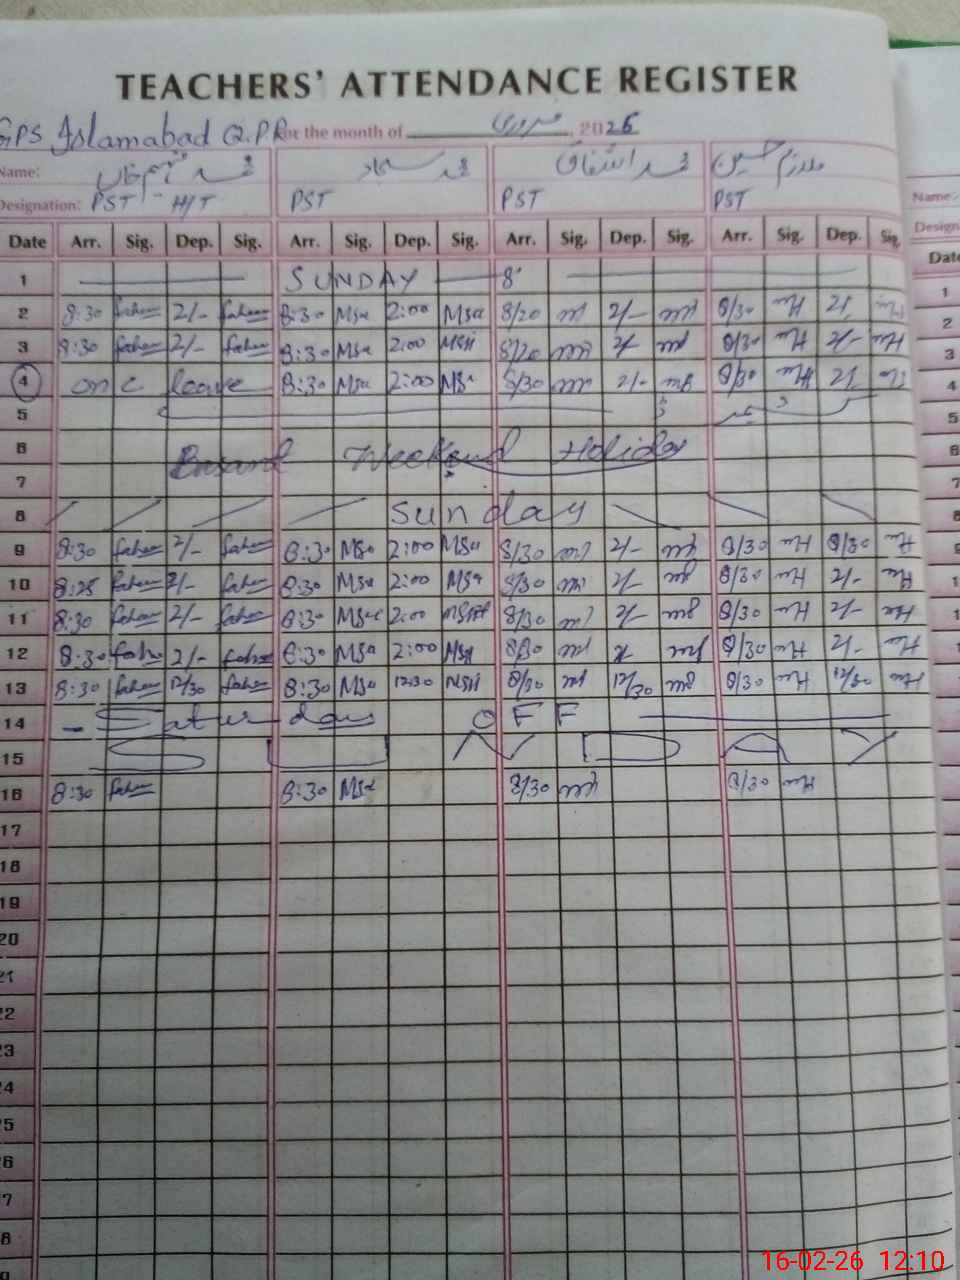 TEACHERS' ATTENDANCE REGISTER
GPS Islamabad Q.PR For the month of فروری, 2026
Name: محمد فہیم خان محمد سجاد محمد اشفاق ملازم حسین Name:
Designation: PST - H/T PST PST PST
Date Arr. Sig. Dep. Sig. Arr. Sig. Dep. Sig. Arr. Sig. Dep. Sig. Arr. Sig. Dep. Sig. Date
1 SUNDAY 1
2 8:30 fahem 2/- fahem 8:30 MSa 2:00 MSa 8/20 2/- 8/30 2/- 2
3 8:30 fahem 2/- fahem 8:30 MSa 2:00 8/20 2/- 8/30 2/- 3
4 on c leave 8:30 MSa 2:00 MSa 8/30 2/- 8/30 2/- 4
5 5
6 Basant Weekend Holiday 6
7 7
8 Sunday 8
9 8:30 fahem 2/- fahem 8:30 MSa 2:00 MSa 8/30 2/- 8/30 8/30 9
10 8:28 fahem 2/- fahem 8:30 MSa 2:00 MSa 8/30 2/- 8/30 2/-
11 8:30 fahem 2/- fahem 8:30 2:00 8/30 2/- 8/30 2/-
12 8:30 fahem 2/- fahem 8:30 MSa 2:00 MSa 8/30 8/30 2/-
13 8:30 fahem 12/30 fahem 8:30 MSa 12:30 8/30 12/30 8/30 12/30
14 - Saturday OFF
15 SUNDAY
16 8:30 fahem 8:30 MSa 8/30 8/30
17
18
19
20
21
22
23
24
25
26
27
28
16-02-26 12:10